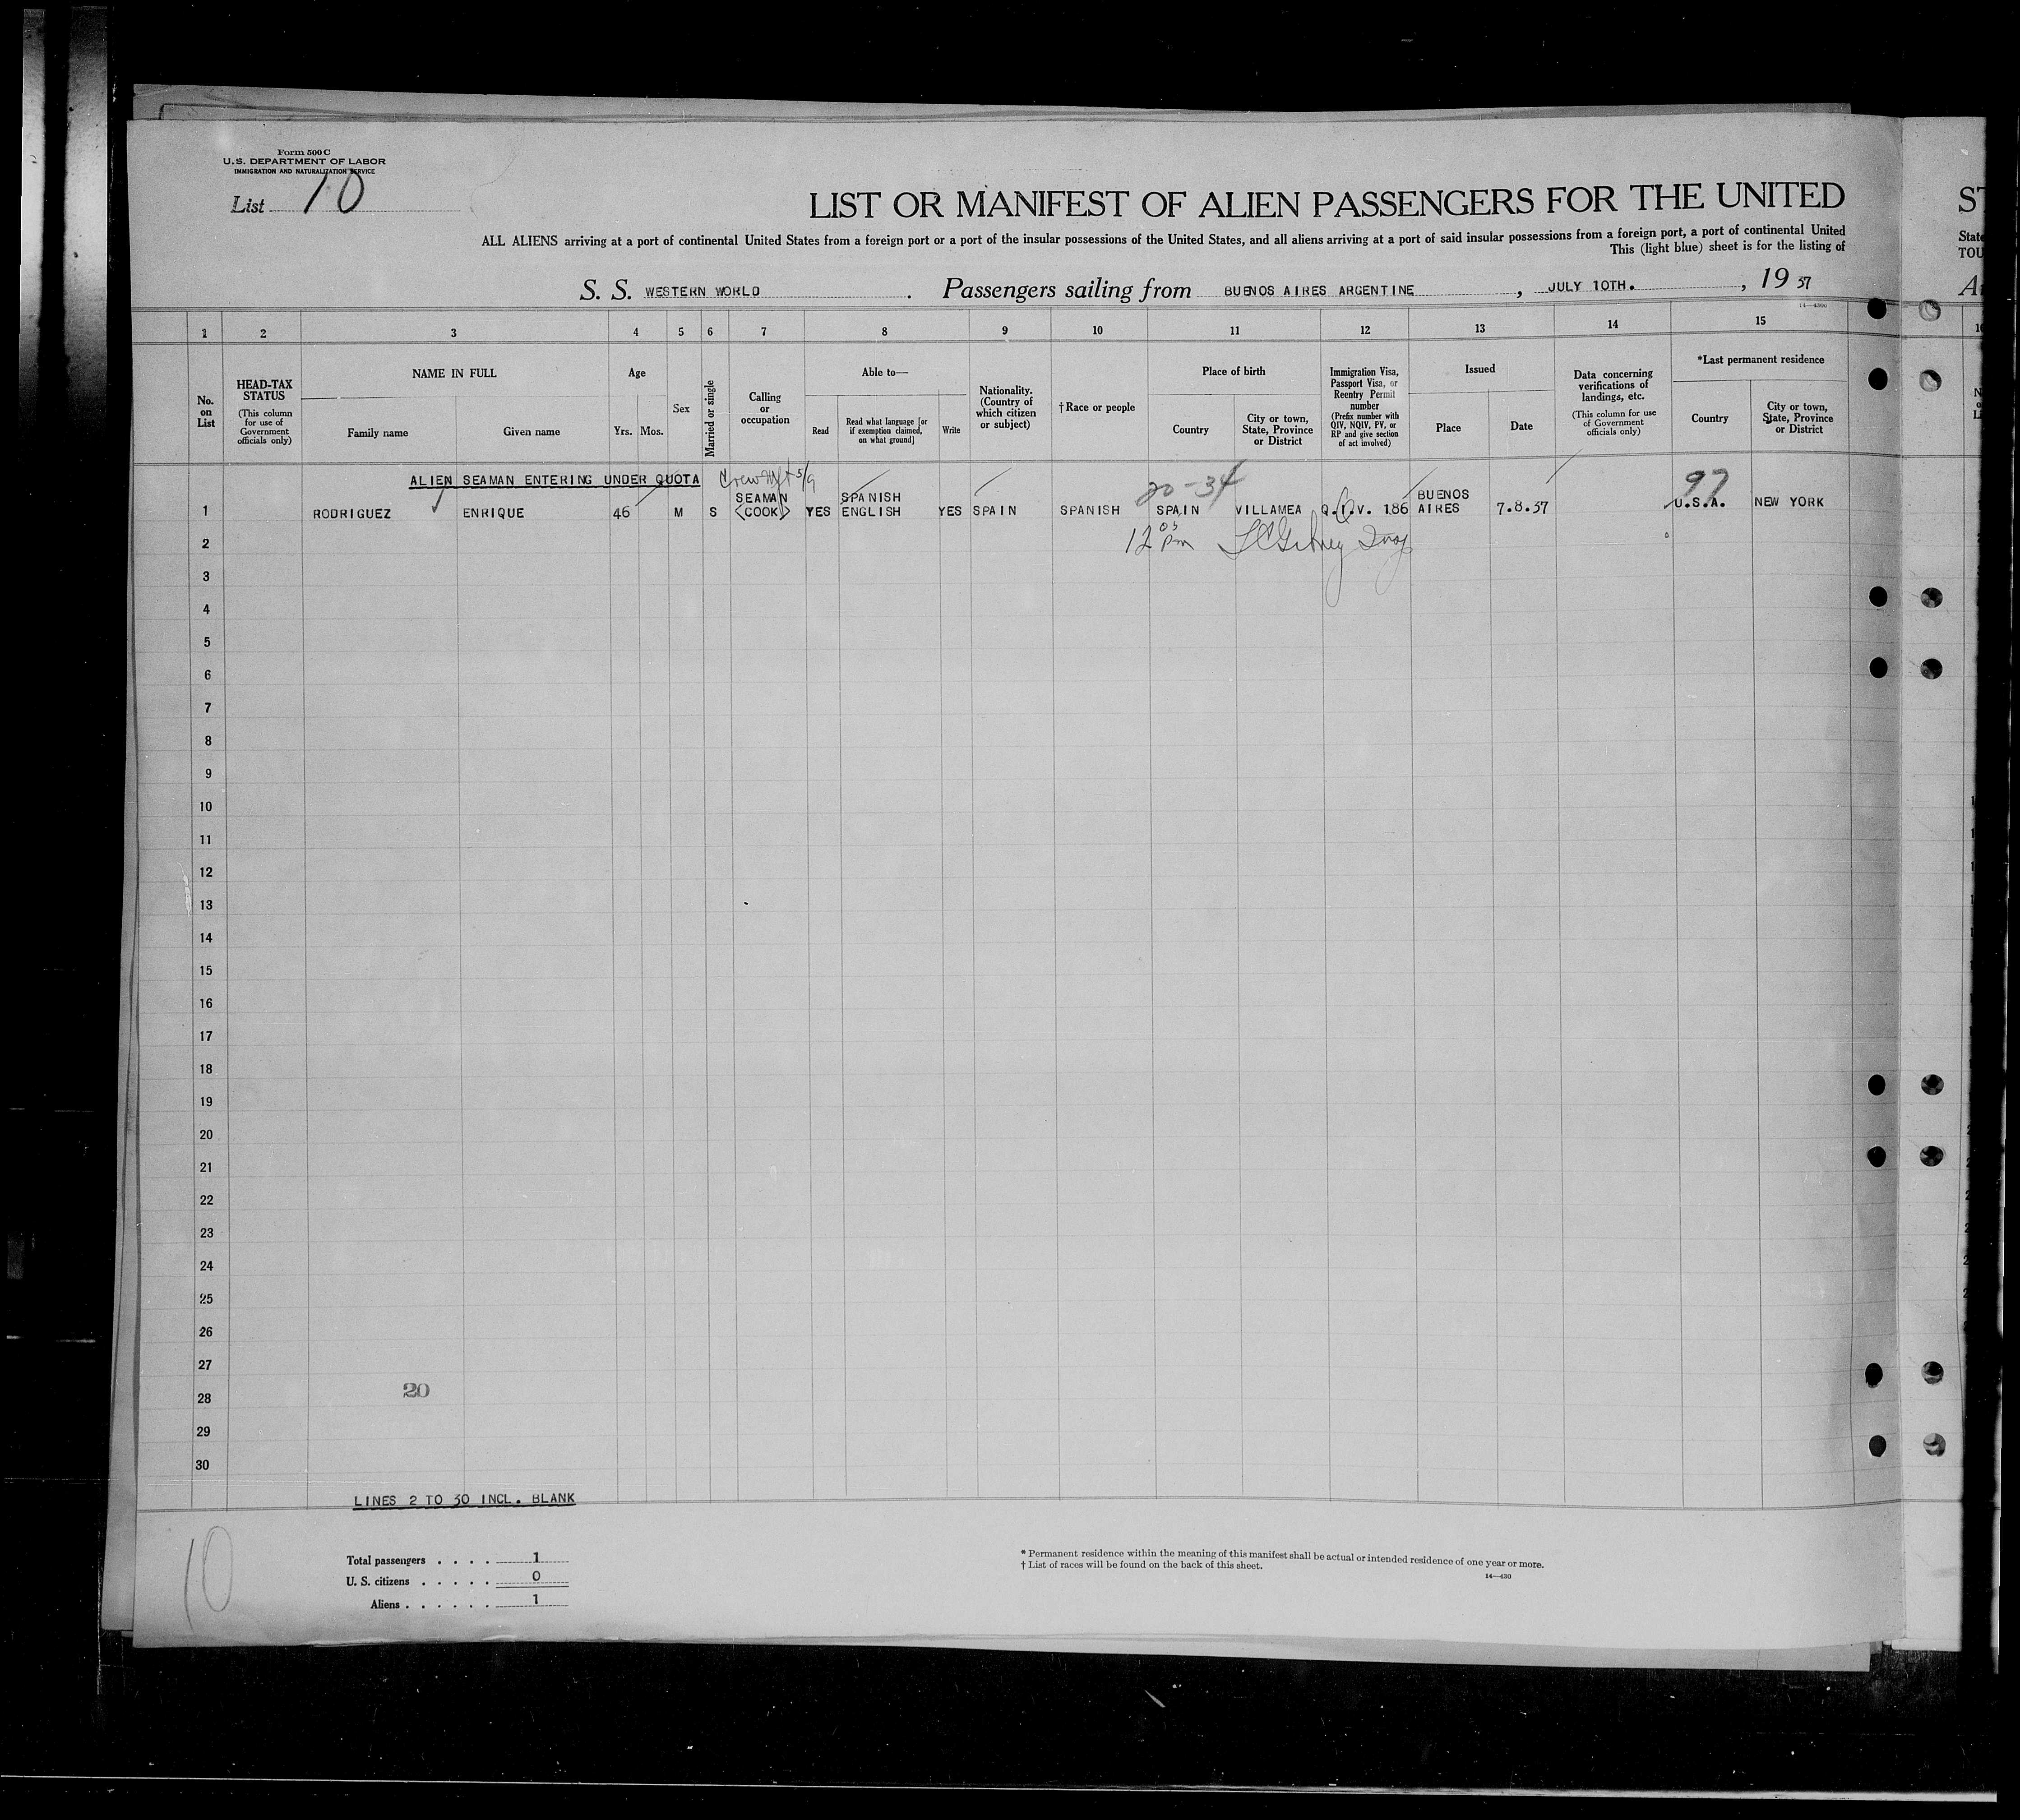 Form 500 C
U. S. DEPARTMENT OF LABOR
IMMIGRATION AND NATURALIZATION SERVICE
List 10
LIST OR MANIFEST OF ALIEN PASSENGERS FOR THE UNITED
ST
ALL ALIENS arriving at a port of continental United States from a foreign port or a port of the insular possessions of the United States, and all aliens arriving at a port of said insular possessions from a foreign port, a port of continental United
State
This (light blue) sheet is for the listing of
TOU
S. S. WESTERN WORLD . Passengers sailing from BUENOS AIRES ARGENTINE , JULY 10TH. , 19 37
14—4300
1 2 3 4 5 6 7 8 9 10 11 12 13 14 15
No. on List
HEAD-TAX STATUS (This column for use of Government officials only)
NAME IN FULL
Family name
Given name
Age
Yrs. Mos.
Sex
Married or single
Calling or occupation
Able to—
Read
Read what language [or if exemption claimed, on what ground]
Write
Nationality. (Country of which citizen or subject)
†Race or people
Place of birth
Country
City or town, State, Province or District
Immigration Visa, Passport Visa, or Reentry Permit number (Prefix number with QIV, NQIV, PV, or RP and give section of act involved)
Issued
Place
Date
Data concerning verifications of landings, etc. (This column for use of Government officials only)
*Last permanent residence
Country
City or town, State, Province or District
ALIEN SEAMAN ENTERING UNDER QUOTA
5/9
20-34
97
1 RODRIGUEZ ENRIQUE 46 M S SEAMAN (COOK) YES SPANISH ENGLISH YES SPAIN SPANISH SPAIN VILLAMEA Q.I.V. 186 BUENOS AIRES 7.8.37 U.S.A. NEW YORK
2 12 05 pm
3
4
5
6
7
8
9
10
11
12
13
14
15
16
17
18
19
20
21
22
23
24
25
26
27
20
28
29
30
LINES 2 TO 30 INCL. BLANK
10
Total passengers . . . . 1
U. S. citizens . . . . . 0
Aliens . . . . . . 1
* Permanent residence within the meaning of this manifest shall be actual or intended residence of one year or more.
† List of races will be found on the back of this sheet.
14—430